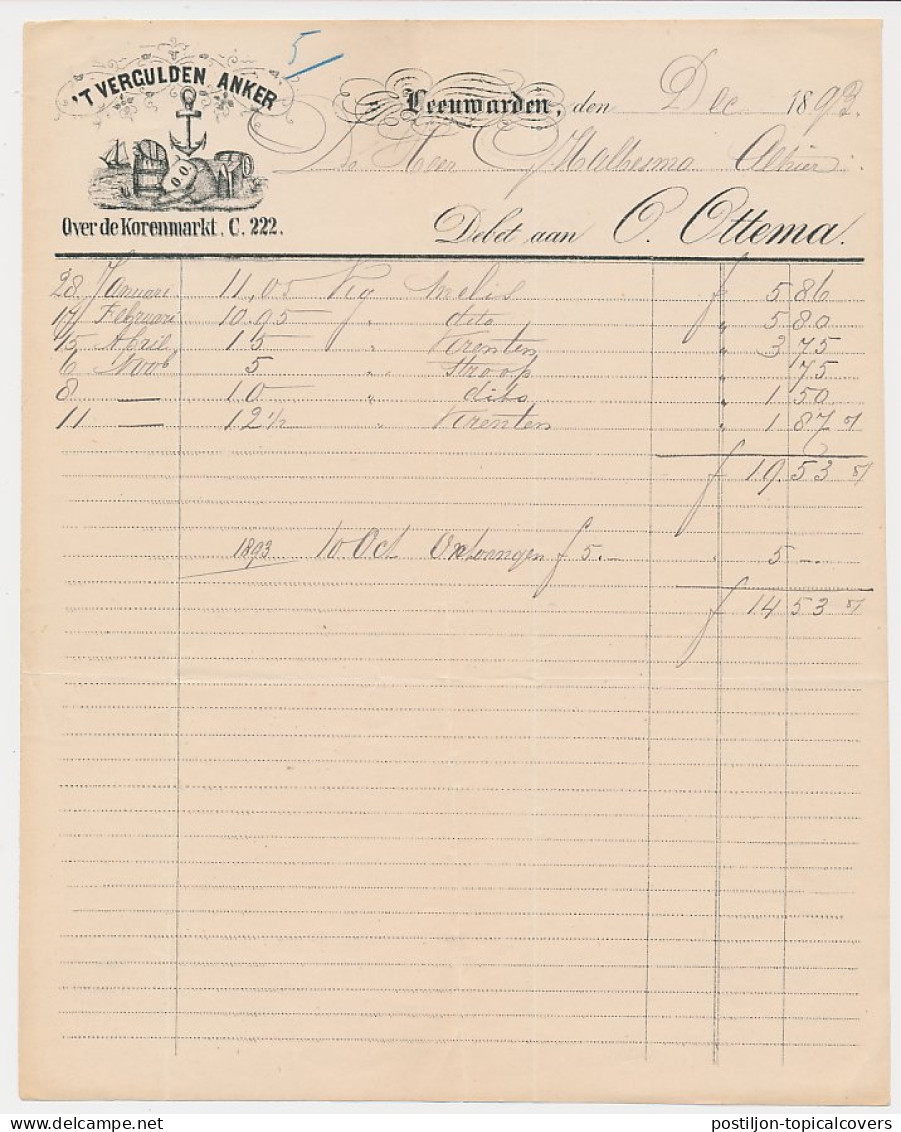 5/
'T VERGULDEN ANKER
O.O.
Over de Korenmarkt. C. 222.
Leeuwarden, den Dec 1893.
De Heer Halbesma Alhier
Debet aan O. Ottema.
28 Januari 11,05 Kig Melis f 5 86
17 Februari 10.95 " dito " 5 80
15 April 15 " Krenten " 3 75
6 Novb 5 " Stroop " 75
8 — 10 " dito " 1 50
11 — 12 1/2 " Krenten " 1 87 5/
f 19.53 5/
1893 10 Oct Ontvangen f 5.– 5 –
f 14 53 5/
postiljon-topicalcovers